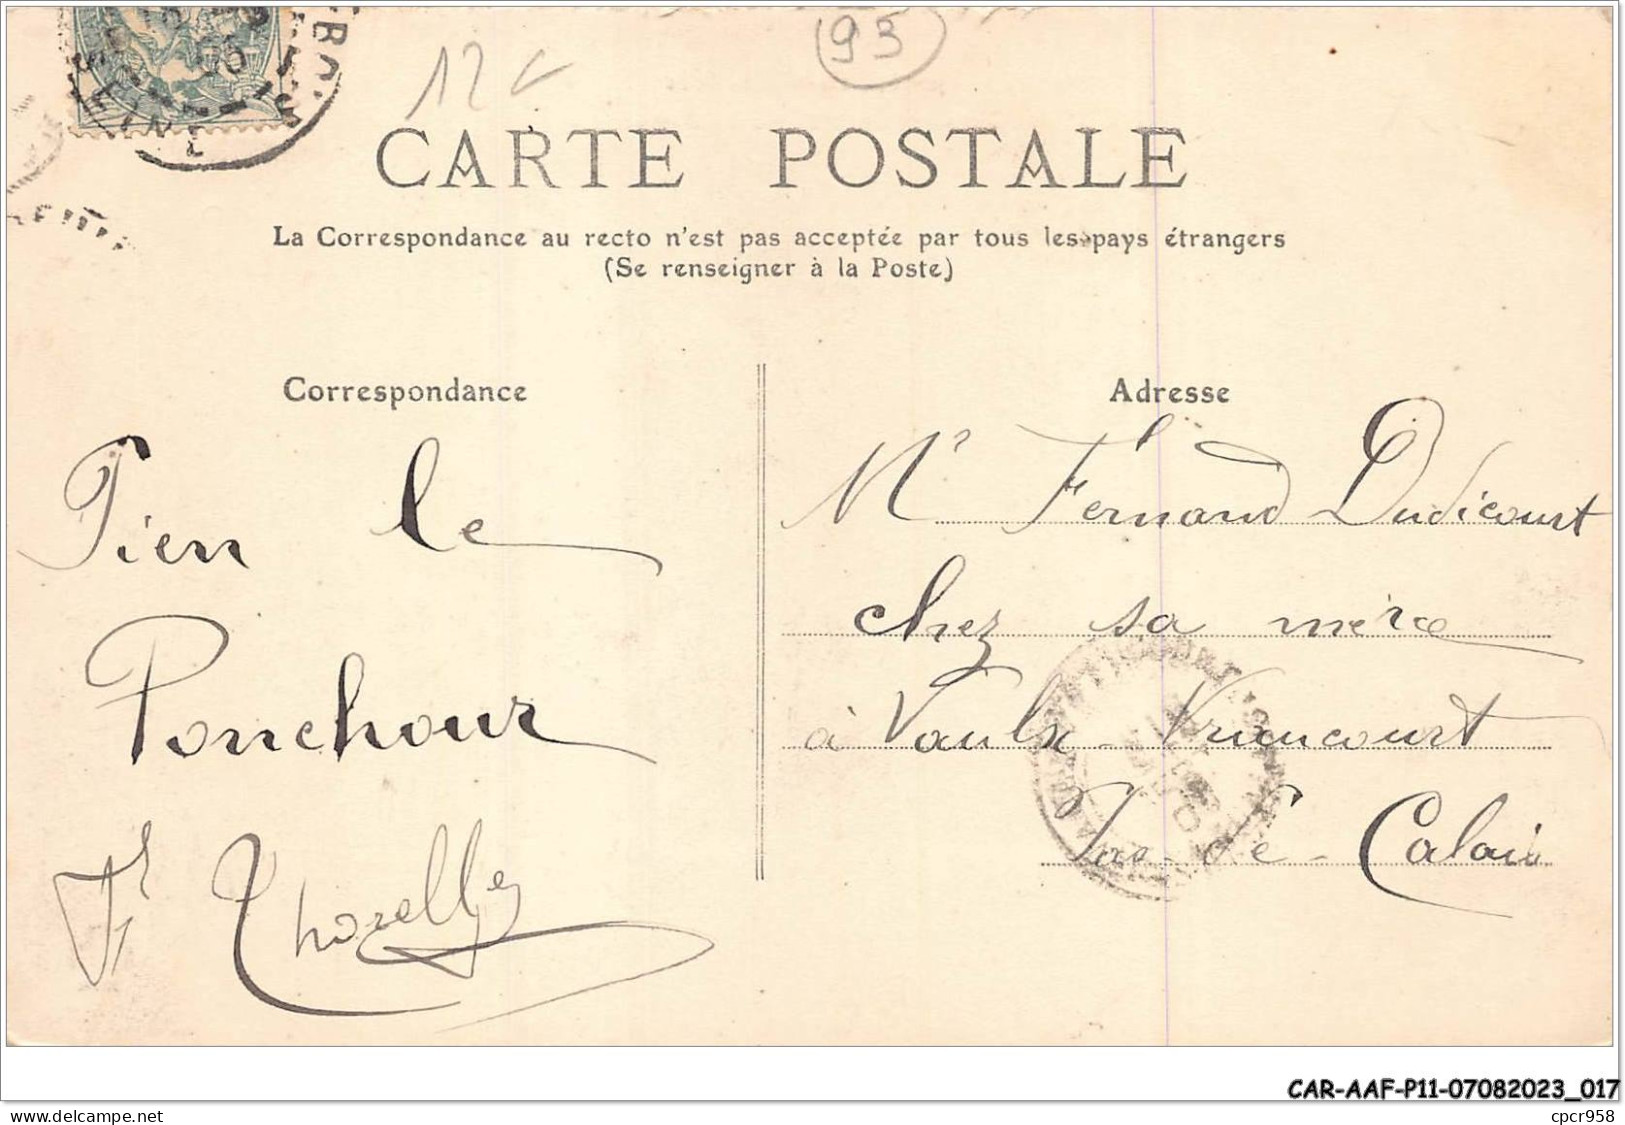 12
93
CARTE POSTALE
La Correspondance au recto n'est pas acceptée par tous les pays étrangers
(Se renseigner à la Poste)
Correspondance
Adresse
Tien le
Ponchour
Thorelle
Mr Fernand Dudicourt
chez sa mère
à Vaulx-Vraucourt
Pas-de-Calais
SEINE
CAR-AAF-P11-07082023_017
delcampe.net
cpcr958